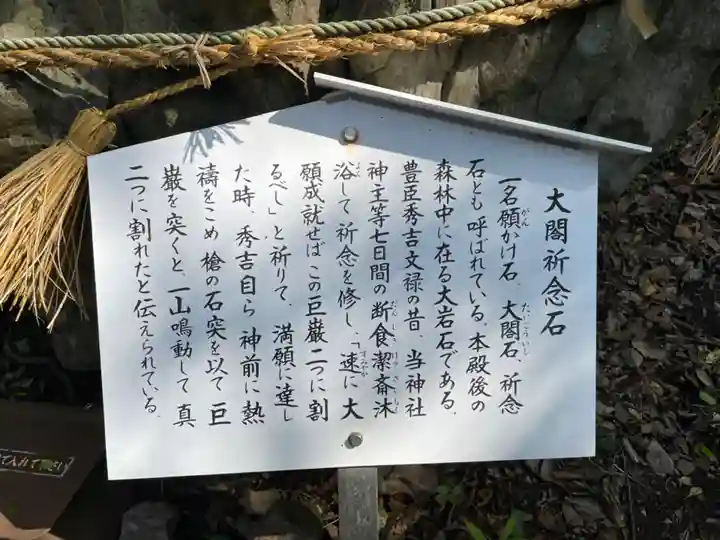 大閤祈念石
一名願かけ石、大閤石、祈念
石とも呼ばれている。本殿後の
森林中に在る大岩石である。
豊臣秀吉文禄の昔、当神社
神主等七日間の断食潔斎沐
浴して祈念を修し、「速に大
願成就せばこの巨巌二つに割
るべし」と祈りて、満願に達し
た時、秀吉自ら神前に熱
祷をこめ槍の石突を以て巨
巌を突くと、一山鳴動して真
二つに割れたと伝えられている。